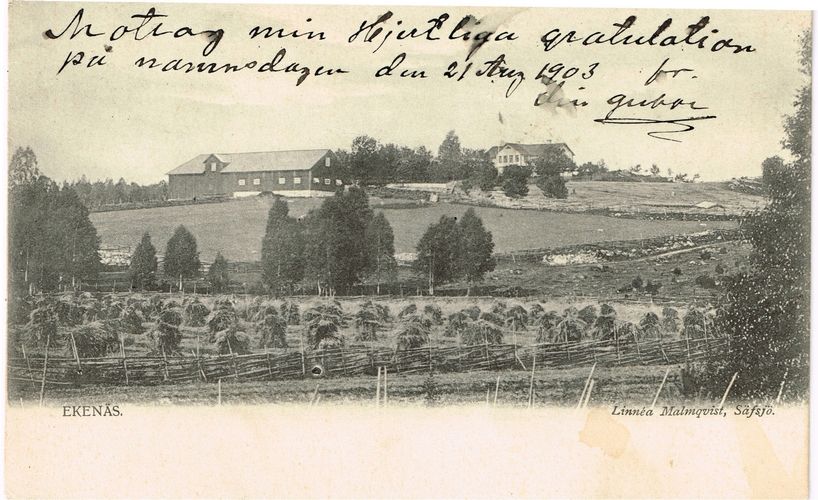 Motrag min Hjertliga gratulation
på namnsdagen den 21 Aug 1903 fr.
din gubbe
EKENÄS.
Linnéa Malmqvist, Säfsjö.